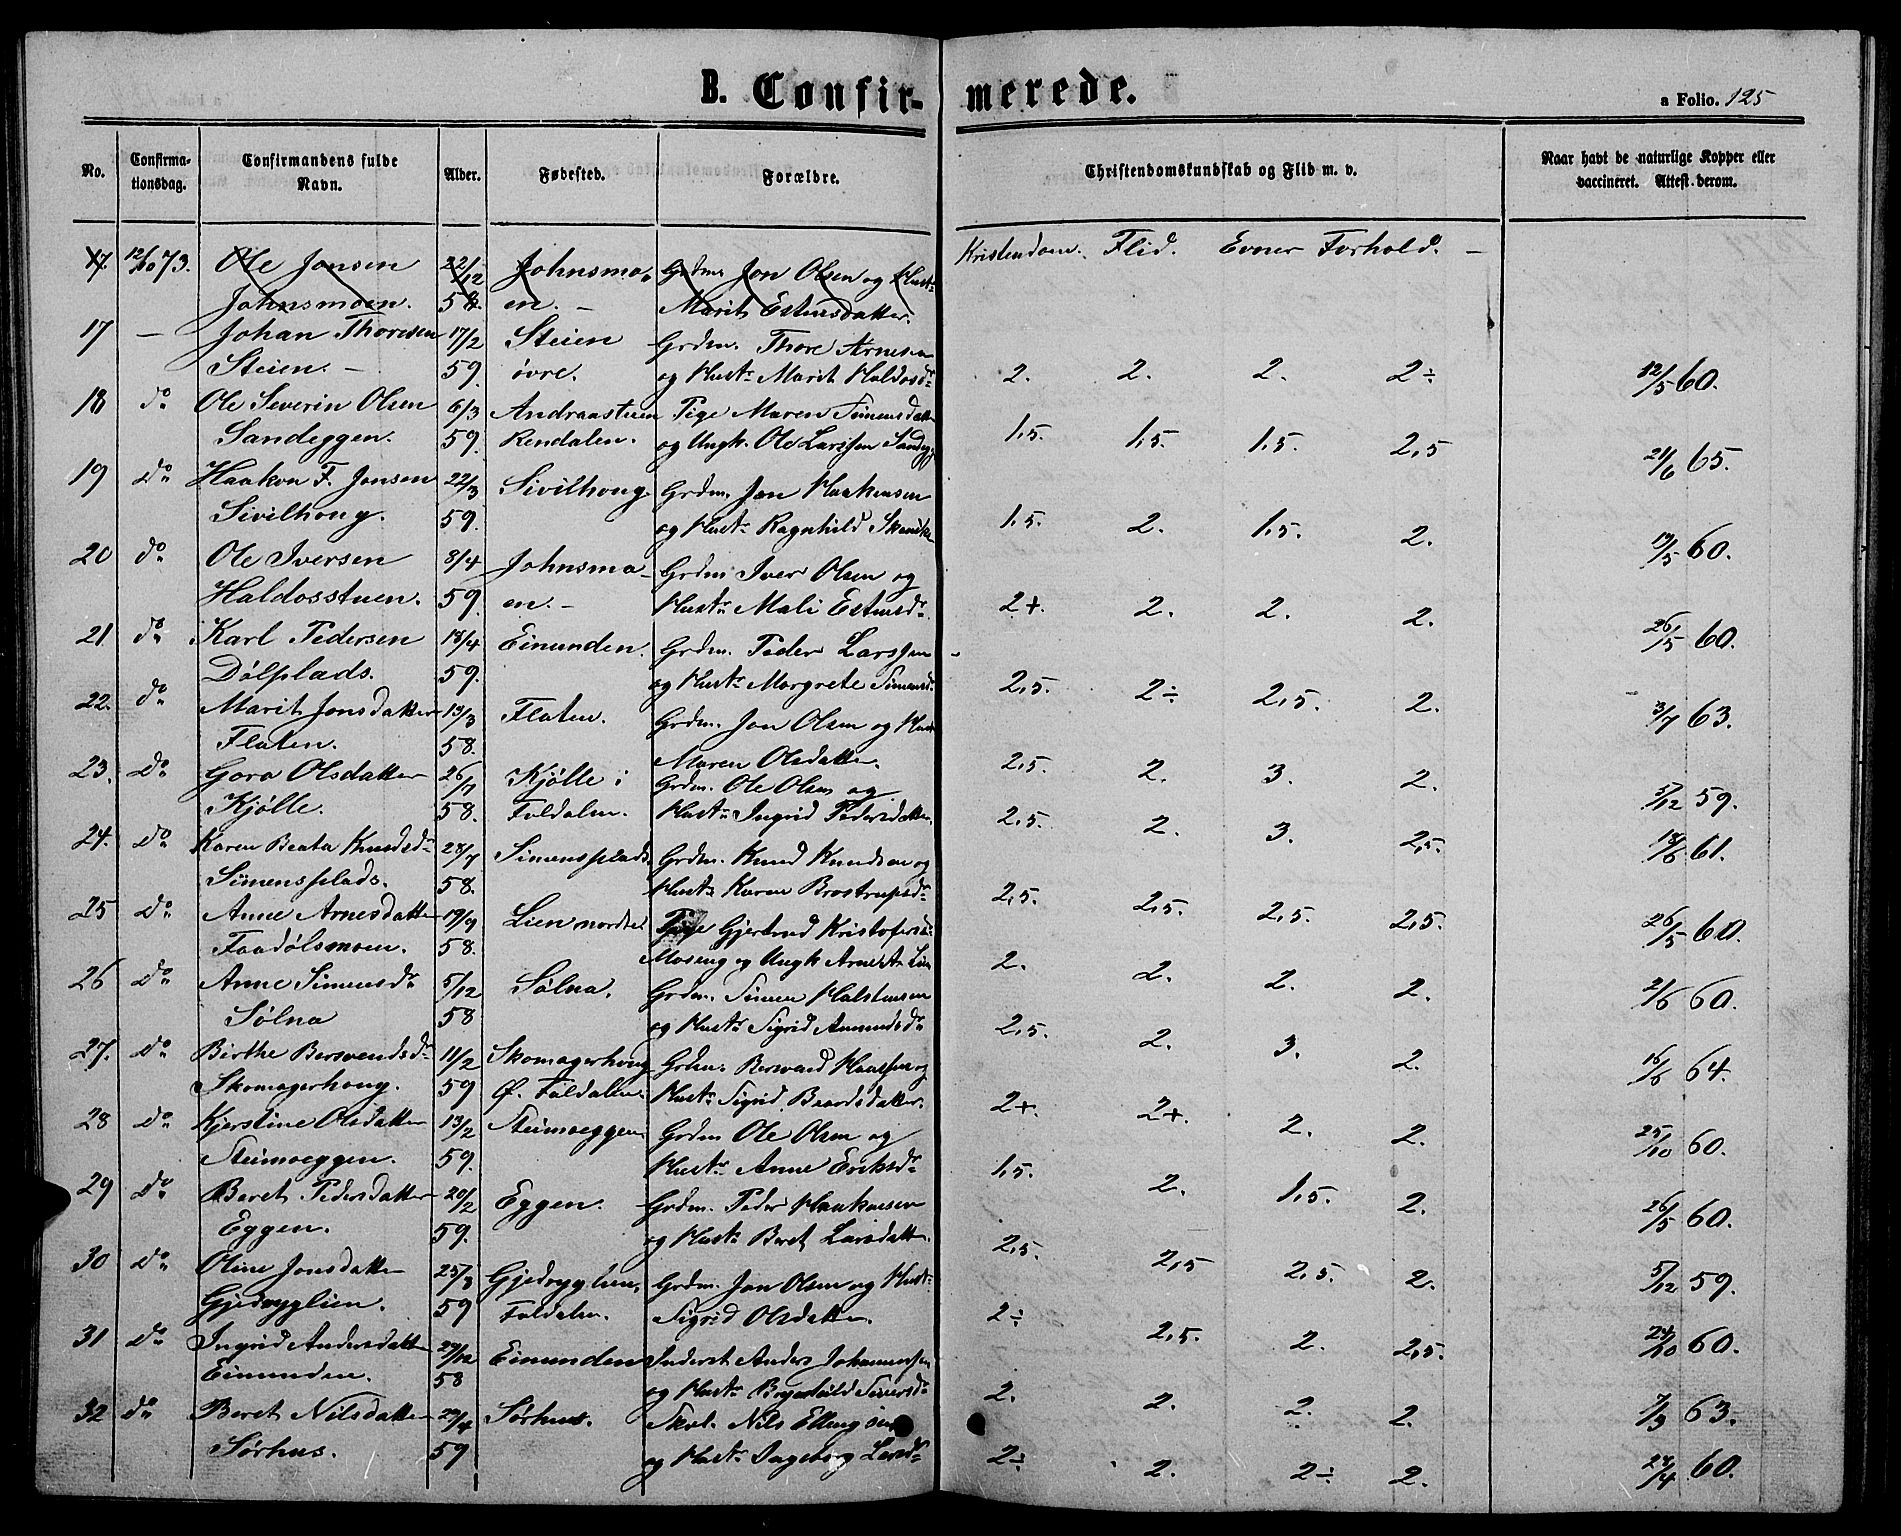 B. Confir- merede.
a Folio. 125
No. Confirma-tionsdag. Confirmandens fulde Navn. Alder. Fødested. Forældre. Christendomskundskab og Flid m. v. Naar havt de naturlige Kopper eller vaccineret. Attest derom.
Kristendom. Flid. Evner Forhold. –
17. 12/10 73. Ole Jonsen 22/12 Johnsmo- Grdm. Jon Olsen og Hust:
Johnsmoen. 58. en. – Marit Estensdatter.
17 – Johan Thoresen 17/2 Steien Grdm. Thore Arnesen
Steien. – 59. øvre. og Hustr Marit Haldosdr 2. 2. 2. 2÷ 12/5 60.
18 do Ole Severin Olsen 6/3 Andraastuen Pige Maren Simensdatter
Sandeggen. 59. Rendalen. og Ungk. Ole Larssen 1,5. 1,5. 1,5. 2,5 21/6 65.
19 Do Haakon F. Jonsen 22/3 Sivilhoug Grdm. Jon Haakensen
Sivilhoug. 59. og Hustr Ragnhild 1,5. 2. 1,5. 2. 60.
20 do Ole Iversen 8/4 Johnsmo- Grdm Iver Olsen og
Haldosstuen. 59. en. – Hustr Mali Estensdr 2+. 2. 2. 2. 26/5 60.
21 do Karl Pedersen 18/4 Einunden. Grdm. Peder Larssen
Dølplads. 59. og Hustr Margrete Simensdr 2,5. 2÷ 2,5. 2. 3/7 63.
22. do Marit Jonsdatter 13/3 Flaten. Grdm. Jon Olsen og Hust
Flaten. 58. Maren Olsdatter. 2,5. 2. 3. 2. 5/12 59.
23. Do Gora Olsdatter 26/7 Kjølle i Grdm. Ole Olsen og
Kjølle. 58. Foldalen. Hustr Ingrid Pedersdatter. 2,5. 2. 3. 2,5. 18/6 61.
24. Do Karen Beata Knudsdr 28/7 Simensplads. Grdm. Knud Knudsen og
Simensplads. 58. Hustr Karen Brostrupsdr 2,5. 2,5. 2,5. 2,5. 26/5 60.
25 Do Anne Arnesdatter 19/9 Lien nordre Pige Gjertrud Kristofersd:
Faadølsmoen. 58. Moseng og Ungk Arne A. Lien 2. 2. 2. 2. 2/6 60.
26 Do Anne Simensdr 5/12 Sølna. Grdm. Simen Halstensen
Sølna 58 og Hustr Sigrid Amundsdr 2,5. 2. 3. 2. 16/6 64.
27. Do Birthe Bersvendsdr 11/2 Skomagerhoug Grdm. Bersvend Haussen og
Skomagerhoug. 59 Ø. Foldalen. Hustr Sigrid Baardsdatter. 2+. 2+. 2. 2. 25/10 60.
28 Do Kjerstine Olsdatter 13/2 Steimoeggen Grdm Ole Olsen og
Steimoeggen. 59. Hustr Anne Eriksdr 1,5. 2. 1,5. 2. 26/5 60.
29 Do Beret Pedersdatter 20/2 Eggen. Grdm. Peder Haakensen
Eggen. 59. og Hustr Beret Larsdatter. 2,5. 2,5 2,5. 2. 5/12 59.
30 Do Oline Jonsdatter 25/3 Gjedryglien, Grdm. Jon Olsen og Hust:
Gjedryglien. 59 Foldalen. Sigrid Olsdatter. 2÷ 2,5. 2. 2,5. 24/10 60.
31 Do Ingrid Andersdatter 29/12 Einunden Inderst Anders Johannessen
Einunden. 58 og Hustr Brynhild Siversdr 2. 2. 2. 2. 7/9 63.
32 do Beret Nilsdatter 29/4 Sørhus. Skol. Nils Ellingsen
Sørhus. 59 og Hustr Ingeborg Larsdr 2÷ 2. 2÷ 2. 24/4 60.